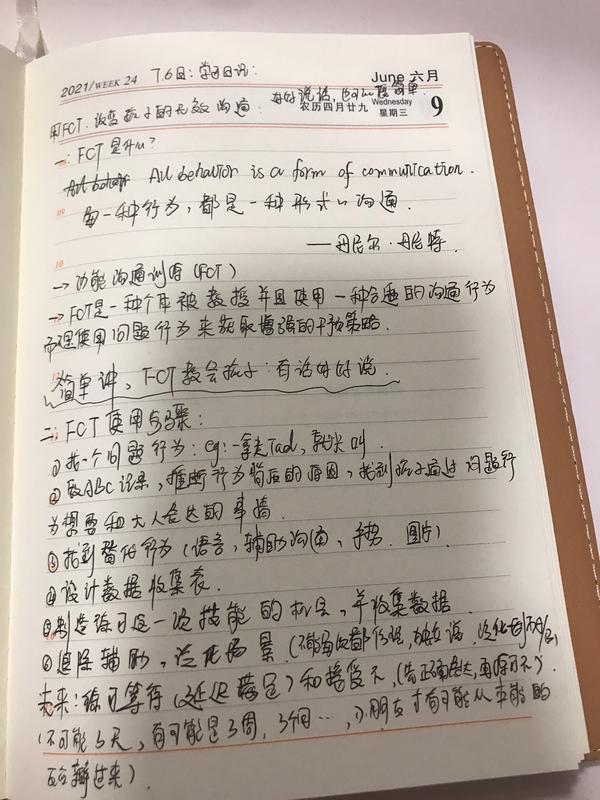 2021/WEEK 24 7.6日:学习日记: June 六月
好好说话,也可以很简单
用FCT.改变孩子的无效沟通. 农历四月廿九 Wednesday 星期三 9
一:FCT是什么?
All behavior is a form of communication.
每一种行为,都是一种形式的沟通.
——丹尼尔·丹尼特.
10
→功能沟通训练(FCT)
→FCT是一种个体被教授并且使用一种合适的沟通行为
而理使用问题行为来获取增强的干预策略.
简单讲,FCT教会孩子:有话好好说.
二、FCT使用步骤:
①找一个问题行为:eg:一拿走Tad,就尖叫.
②取ABC记录,推断行为背后的原因,找到孩子通过问题行
为想要和大人表达的事情.
③找到替代行为(语言,辅助沟通,手势.图片).
④设计数据收集表.
⑤制造练习这一次技能的机会,并收集数据.
⑥追除辅助,泛化场景.(不能每次都,独立说.
未来:练习等待(延迟满足)和接受不,(先正确表达,再学习不).
(不可能3天,有可能是3周,3个月…,小朋友才有可能从本能的
分辨过来).